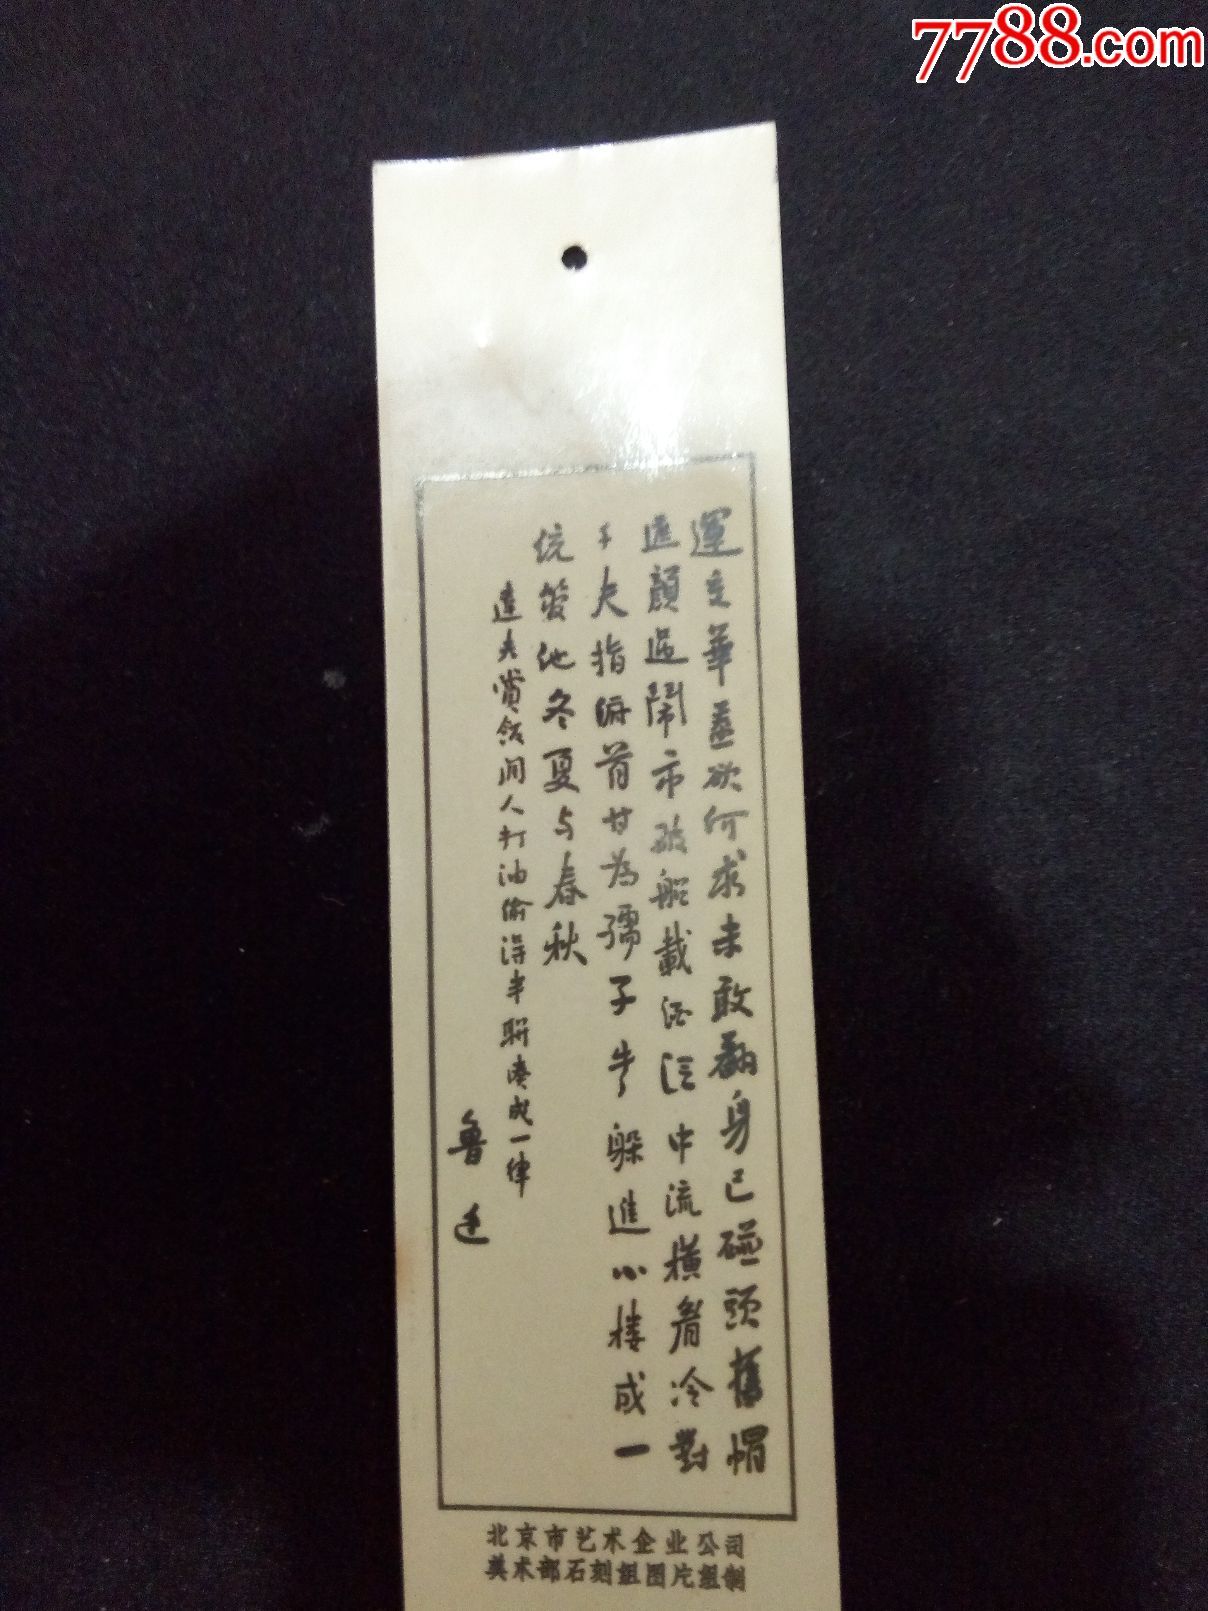 7788.com
運交華蓋欲何求未敢翻身已碰頭舊帽
遮顏過鬧市破船載酒泛中流横眉冷對
千夫指俯首甘为孺子牛躲進小樓成一
统管他冬夏与春秋
達夫賞飯閒人打油偷得半联湊成一律
魯迅
北京市艺术企业公司
美术部石刻组图片组制